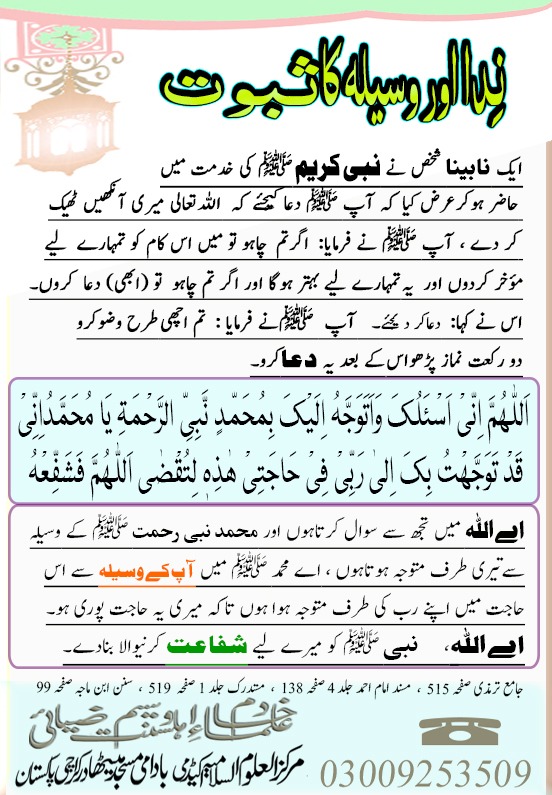 نِدا اور وسیلہ کا ثبوت
ایک نابینا شخص نے نبی کریم ﷺ کی خدمت میں
حاضر ہو کر عرض کیا کہ آپ ﷺ دعا کیجئے کہ اللہ تعالی میری آنکھیں ٹھیک
کر دے ، آپ ﷺ نے فرمایا: اگر تم چاہو تو میں اس کام کو تمہارے لیے
مؤخر کردوں اور یہ تمہارے لیے بہتر ہوگا اور اگر تم چاہو تو (ابھی) دعا کروں۔
اس نے کہا: دعا کر دیجئے۔ آپ ﷺ نے فرمایا : تم اچھی طرح وضو کرو
دو رکعت نماز پڑھو اس کے بعد یہ دعا کرو۔
اَللّٰهُمَّ اِنِّیْ اَسْئَلُکَ وَاَتَوَجَّهُ اِلَیْکَ بِمُحَمَّدٍ نَّبِیِّ الرَّحْمَةِ یَا مُحَمَّدُ اِنِّیْ
قَدْ تَوَجَّهْتُ بِکَ اِلٰی رَبِّیْ فِیْ حَاجَتِیْ هٰذِهٖ لِتُقْضٰی اَللّٰهُمَّ فَشَفِّعْهُ
اے اللہ میں تجھ سے سوال کرتا ہوں اور محمد نبی رحمت ﷺ کے وسیلہ
سے تیری طرف متوجہ ہوتا ہوں ، اے محمد ﷺ میں آپ کے وسیلہ سے اس
حاجت میں اپنے رب کی طرف متوجہ ہوا ہوں تاکہ میری یہ حاجت پوری ہو۔
اے اللہ، نبی ﷺ کو میرے لیے شفاعت کرنیوالا بنادے۔
جامع ترمذی صفحہ 515 ، مسند امام احمد جلد 4 صفحہ 138 ، مستدرک جلد 1 صفحہ 519 ، سنن ابن ماجہ صفحہ 99
خادم علماء اہلسنت وسیم ضیائی
مرکز العلوم الاسلامیہ اکیڈمی بادامی مسجد میٹھادر کراچی پاکستان
03009253509